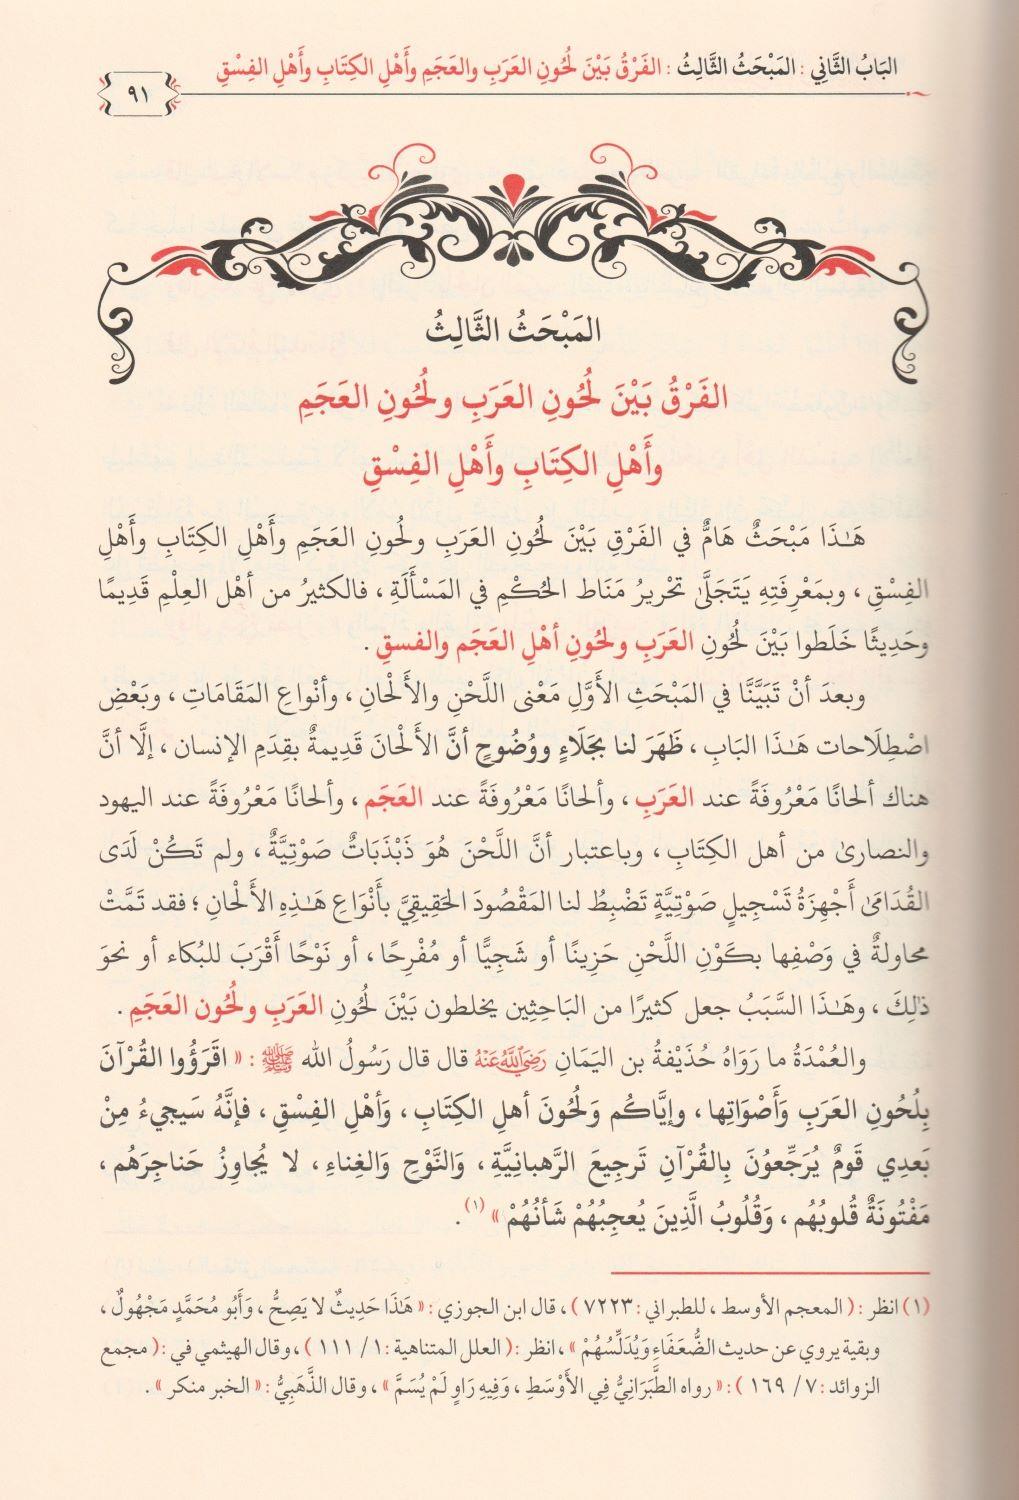 البَابُ الثَّانِي : المَبْحَثُ الثَّالِثُ : الفَرْقُ بَيْنَ لُحُونِ العَرَبِ والعَجَمِ وأَهْلِ الكِتَابِ وأَهْلِ الفِسْقِ
٩١
المَبْحَثُ الثَّالِثُ
الفَرْقُ بَيْنَ لُحُونِ العَرَبِ ولُحُونِ العَجَمِ
وأَهْلِ الكِتَابِ وأَهْلِ الفِسْقِ
هَـٰذَا مَبْحَثٌ هَامٌّ في الفَرْقِ بَيْنَ لُحُونِ العَرَبِ ولُحُونِ العَجَمِ وأَهْلِ الكِتَابِ وأَهْلِ
الفِسْقِ ، وبمَعْرِفَتِهِ يَتَجَلَّىٰ تحْرِيرُ مَنَاط الحُكْمِ في المَسْأَلَةِ ، فالكثيرُ من أهْل العِلْمِ قَدِيمًا
وحَدِيثًا خَلَطُوا بَيْنَ لُحُونِ العَرَبِ ولحُونِ أهْلِ العَجَم والفسقِ .
وبعدَ أنْ تَبَيَّنَّا في المَبْحَثِ الأَوَّلِ مَعْنى اللَّحْنِ والأَلْحانِ ، وأنْواعِ المَقَامَاتِ ، وبَعْضِ
اصْطِلَاحات هَـٰذَا البَابِ ، ظَهَرَ لنا بجَلَاءٍ ووُضُوحٍ أنَّ الأَلْحانَ قَدِيمةٌ بقِدَمِ الإنسان ، إلَّا أنَّ
هناك ألحانًا مَعْرُوفَةً عند العَرَبِ ، وألحانًا مَعْرُوفَةً عند العَجَم ، وألحانًا مَعْرُوفَةً عند اليهود
والنصارىٰ من أهل الكِتَابِ ، وباعتبار أنَّ اللَّحْنَ هوَ ذَبْذَبَاتٌ صَوْتِيَّةٌ ، ولم تَكُنْ لَدَى
القُدَامَىٰ أَجْهِزَةُ تَسْجِيلٍ صَوْتِيَّةٍ تَضْبِطُ لنا المَقْصُودَ الحَقِيقِيَّ بأنْوَاعِ هَـٰذِهِ الأَلْحانِ ؛ فقد تَمَّتْ
محاولةٌ في وَصْفِها بكَوْنِ اللَّحْنِ حَزِينًا أو شَجِيًّا أو مُفْرِحًا ، أو نَوْحًا أَقْرَبَ للبُكاء أو نحوَ
ذٰلِكَ ، وهَـٰذَا السَّبَبُ جعل كثيرًا من البَاحِثِين يخلطون بَيْنَ لُحُونِ العَرَبِ ولُحُون العَجَمِ .
والعُمْدَةُ ما رَوَاهُ حُذَيْفةُ بن اليَمَانِ رَضِيَ اللَّهُ عَنْهُ قال قال رَسُولُ الله ﷺ : « اقْرَؤُوا القُرْآنَ
بِلُحُونِ العَرَبِ وَأَصْوَاتِها ، وإيَّاكُم وَلُحُونَ أهلِ الكِتَابِ، وَأَهْلِ الفِسْقِ ، فإنَّهُ سَيَجيءُ مِنْ
بَعدِي قَومٌ يُرَجِّعُونَ بِالقُرْآنِ تَرجِيعَ الرَّهبانِيَّةِ، وَالنَّوْحِ وَالغِناءِ، لا يُجاوِزُ حَناجِرَهُم ،
مَفْتُونَةٌ قُلوبُهُم ، وَقُلُوبُ الَّذِينَ يُعجِبُهُمْ شَأنُهُمْ » (١) .
(١) انظر : ( المعجم الأوسط ، للطبراني : ٧٢٢٣ ) ، قال ابن الجوزي : « هَـٰذَا حَدِيثٌ لا يَصِحُّ ، وَأَبُو مُحَمَّدٍ مَجْهُولٌ ،
وبقية يروي عن حديث الضُّعَفَاءِ وَيُدَلِّسُهُمْ » ، انظر : ( العلل المتناهية : ١/ ١١١ ) ، وقال الهيثمي في : ( مجمع
الزوائد : ٧/ ١٦٩ ) : « رواه الطَّبَرَانِيُّ فِي الأَوْسَطِ ، وَفِيهِ رَاوٍ لَمْ يُسَمَّ » ، وقال الذَّهَبِيُّ : « الخبر منكر » .